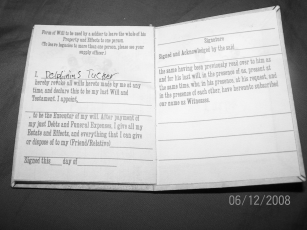 Form of Will to be used by a soldier to leave the whole of his
Property and Effects to one person.
(To leave legacies to more than one person, please see your
supply officer.)
I, Delphinus Tucker
hereby revoke all wills hereto made by me at any
time, and declare this to be my last Will and
Testament. I appoint,
to be the Executor of my will. After payment of
my just Debts and Funeral Expenses, I give all my
Estate and Effects, and everything that I can give
or dispose of to my (Friend/Relative)
Signed this day of
Signature
Signed and Acknowledged by the said
the same having been previously read over to him as
and for his last will, in the presence of us, present at
the same time, who, in his presence, at his request, and
in the presence of each other, have hereunto subscribed
our names as Witnesses.
06/12/2008